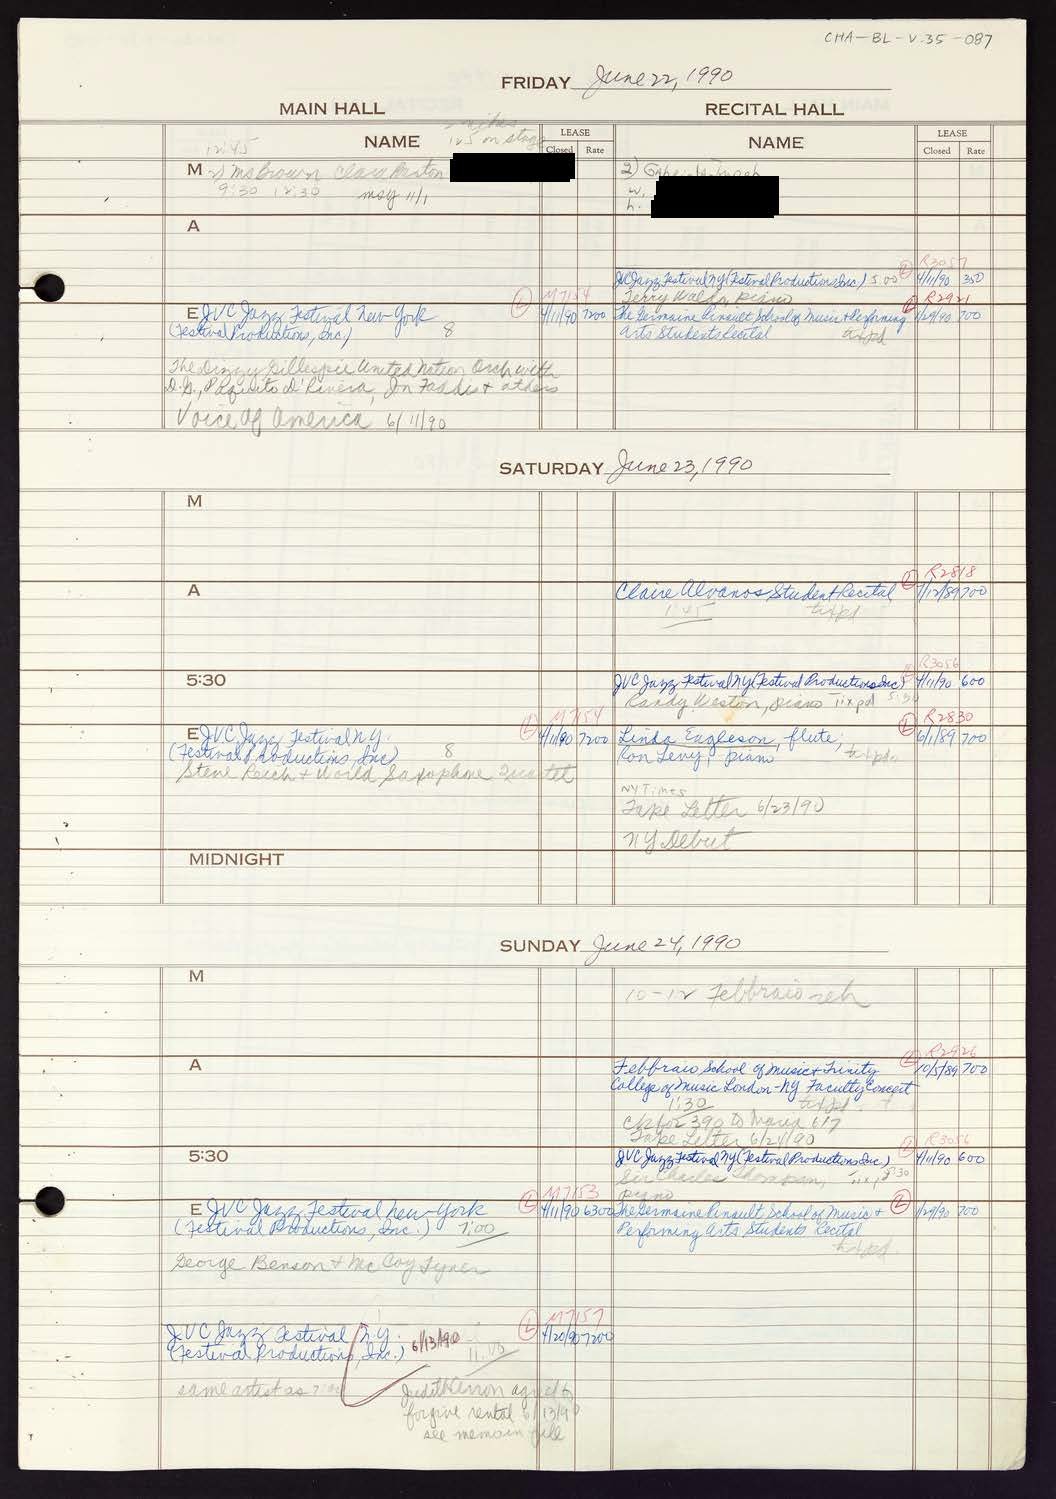 CHA-BL-V.35-087
FRIDAY June 22, 1990
MAIN HALL
RECITAL HALL
NAME
LEASE
Closed Rate
NAME
LEASE
Closed Rate
12:45
125 on stage
M 2) Ms Brown Clara
9:30 12:30 msg 11/1
2)
w.
h.
A
R3057
JVC Jazz Festival NY (Festival Productions Inc) 5:00 L 4/11/90 350
Terry Waldo, piano
M7154
L
E JVC Jazz Festival New York 4/11/90 7200
(Festival Productions, Inc) 8
R2921
L
The Germaine Pinault School of Music & Performing 1/29/90 700
Arts Students Recital tixpd
The Dizzy Gillespie United Nation Orch with
D.G., Paquito D'Rivera, Jon Faddis + others
Voice of America 6/11/90
SATURDAY June 23, 1990
M
A
R2818
Claire Alvanos Student Recital L 7/12/89 700
1:45 tixpd
5:30
R3056
JVC Jazz Festival NY (Festival Productions Inc) L 4/11/90 600
Randy Weston, piano Tixpd 5:30
M7154
E JVC Jazz Festival N.Y. L 4/11/90 7200
(Festival Productions, Inc) 8
Steve Reich + World Saxophone Quartet
R2830
Linda Eagleson, flute; L 6/1/89 700
Ron Levy, piano tixpd
NY Times
Tape Letter 6/23/90
NY Debut
MIDNIGHT
SUNDAY June 24, 1990
M
10-12 Febbraio reh
A
R2926
Febbraio School of Music & Trinity L 10/5/89 700
College of Music London-NY Faculty Concert
1:30 tixpd
ck for 390 to Maria 6/7
Tape Letter 6/24/90
5:30
R3056
JVC Jazz Festival NY (Festival Productions Inc) L 4/11/90 600
Sir Charles Thompson, Tixpd 5:30
piano
M7153
E JVC Jazz Festival New York L 4/11/90 6300
(Festival Productions, Inc.) 7:00
The Germaine Pinault School of Music & L 1/29/90 700
Performing Arts Students Recital
tixpd.
George Benson + McCoy Tyner
M7157
JVC Jazz Festival N.Y. L 4/20/90 7200
(Festival Productions, Inc.) 6/13/90 11:00
same artist as 7:00
Judith to
forgive rental 6/13/90
see memo in file